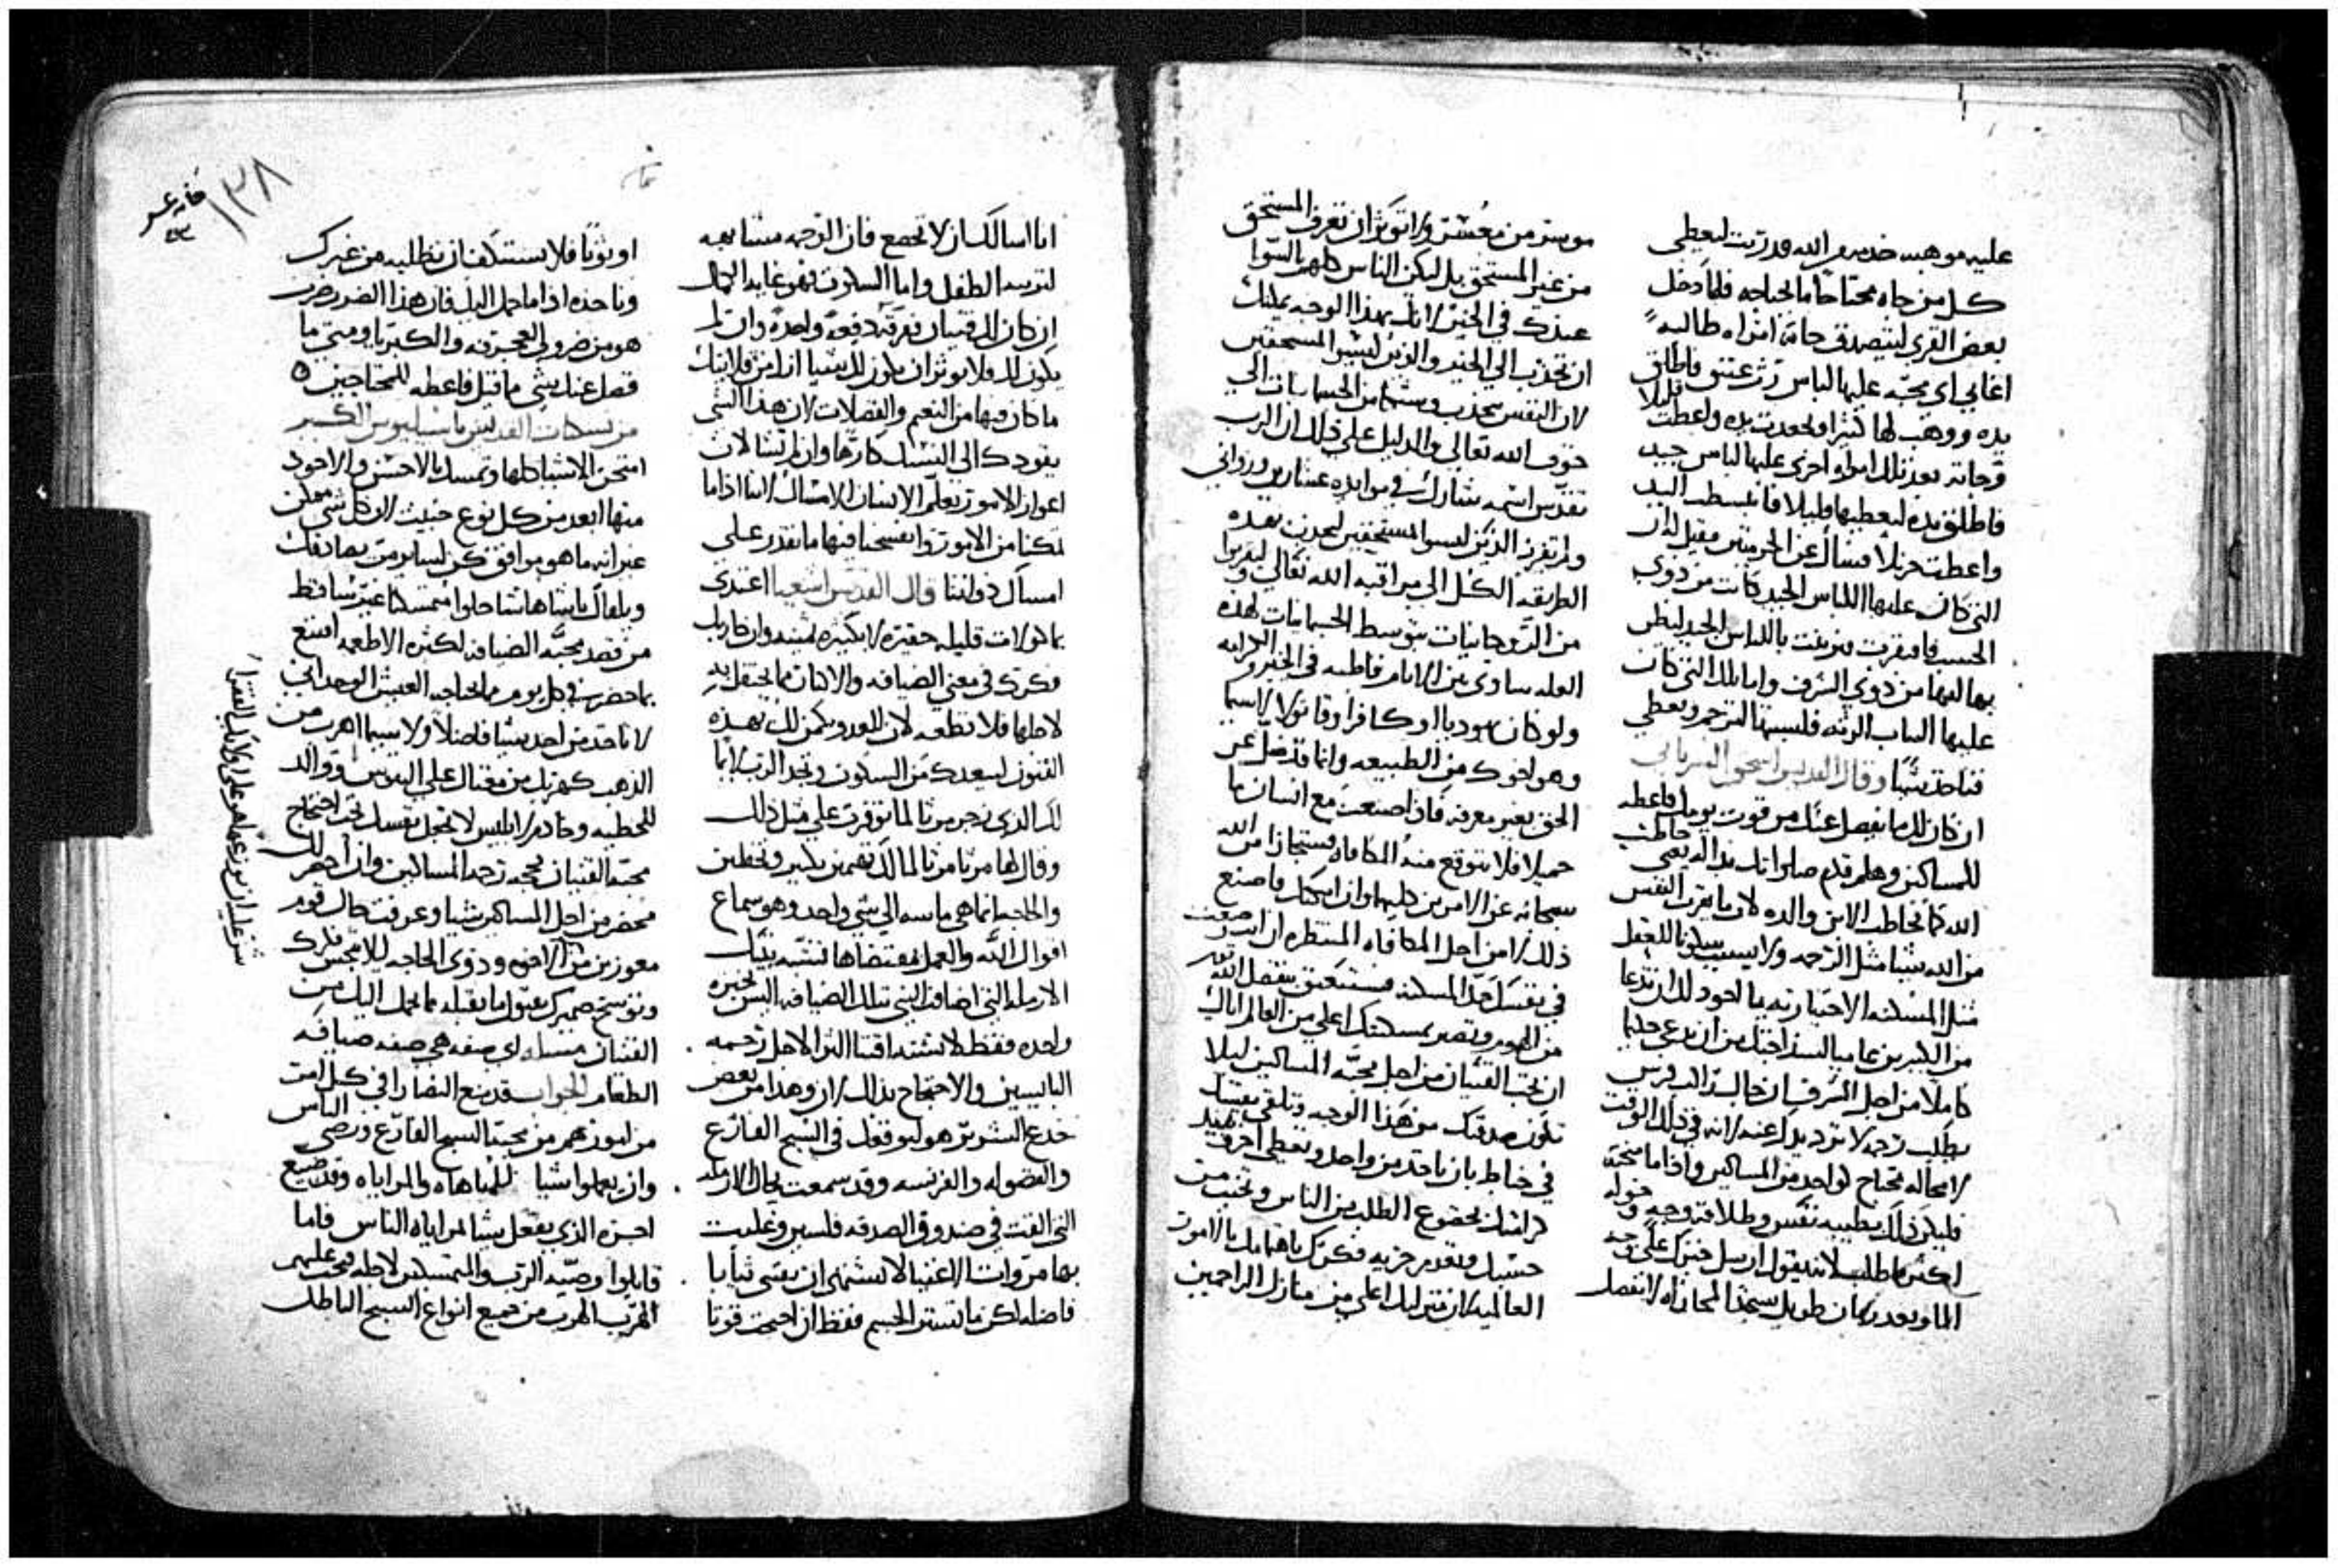 عليه موهبه خدمه والله قد رتبت ليعطي
كل من جاه محتاجاً ما يحتاجه فلما دخل
بعض القري ليتصدق جاته امراه طالبه
اغابي اي محبه عليها لباس رث عتيق فاطلق
يده ووهب لها كثيرا وجمدت يده واعطت قليلا
وجاته بعد تلك امراه اخري عليها لباس جيد
فاطلق يده ليعطيها قليلا فانبسطت اليد
واعطت جزيلا فسال عن الحرمتين فقيل له ان
التي كان عليها اللباس الجيد كانت من ذوي
الحسب فافتقرت وتزينت باللباس الجيد لينظر
بها انها من ذوي الشرف واما تلك التي كان
عليها الثياب الرثه فلبستها لترحم وتعطي
فتاخذ شيا وقال القديس اسحق السرياني
ان كان لك ما يفضل عنك من قوت يومك فاعطه
للمساكين وهلم قدم صلواتك بداله يعني خاطب
الله كما يخاطب الابن والده لان ما يقرب النفس
من الله شيا مثل الرحمه ولا يسبب سكونا للعقل
مثل المسكنه الاختياريه فالاجود لك ان تدعا
من الكثيرين عاميا لسذاجتك من ان تدعي حكيما
كاملا من اجل الشرف ان جا لك راكب فرس
يطلب رحمه لا ترد يدك عنه لانه في ذلك الوقت
لا محاله محتاج كواحد من المساكين واذا ما منحته
فليكن ذلك بطيبه نفس وطلاقه وجه وخوله
اكثر ما طلب لانه يقول ارسل خبزك علي وجه
الما وبعد زمان طويل ستجد المجازاه لا تفصل
موسر من معسر ولا توثر ان تعرف المستحق
من غير المستحق بل ليكن الناس كلهم بالسوا
عندك في الخير لانك بهذا الوجه يمكنك
ان تجذب الي الخير والذين ليسوا المستحقين
لان النفس تنجذب وشيكا من الجسمانيات الي
خوف الله تعالي والدليل علي ذلك ان الرب
تقدس اسمه شارك في موايده عشارين وزواني
ولم يفرز الذين ليسوا المستحقين ليجذب بهذه
الطريقه الكل الي مراقبه الله تعالي ويقربوا
من الروحانيات بتوسط الجسمانيات لهذه
العله ساوي بين الانام قاطبه في الخير والكرامه
ولو كان يهوديا او كافرا او قاتولا لا سيما
وهو اخوك من الطبيعه وانما قد ضل عن
الحق بغير معرفه فاذا صنعت مع انسان ما
جميلا فلا تتوقع منه المكافاه فستجازا من الله
سبحانه عن الامرين كليهما وان امكنك فاصنع
ذلك لا من اجل المكافاه المنتظره ان انت وضعت
في نفسك حد المسكنه فستنعتق بتفضل الله
من الهموم وتصير بمسكنتك اعلي من العالم اياك
ان تحب القنيان من اجل محبه المساكين ليلا
تكون صدقتك من هذا الوجه وتلقي بنفسك
في خباط بان تاخذ من واحد وتعطي اخر فتبيد
كرامتك بخضوع الطلب من الناس وتخيب من
حسبك وتعدم حريه فكرك باهتمامك بالامور
العالميه لان منزلتك اعلي من منازل الراحمين
انا اسالك ان لا تجمع فان الرحمه متشابهه
لتربيه الطفل واما السكون فهو غايه الكمال
ان كان لك قنيان تفرقه دفعه واحده وان لم
يكون لك فلا توثر ان يكون لك شيا انذر قلايتك
ما كان فيها من النعيم والفضلات لان هذا الشي
يقودك الي النسك كارها وان لم تشا لان
اعواز الامور يعلم الانسان الامساك لاننا اذا ما
تمكنا من الامور وانفسحنا فيها ما نقدر علي
امساك ذواتنا قال القديس اشعيا اغتدي
بماكولات قليله حقيره لا بكثيره ثمينه وان كان بك
فكرك في معني الضيافه والاتيان بما يحتفل به
لاجلها فلا تطعه لان العدو يكمن لك بهذه
الفنون ليبعدك من السكون وتجد الرب لايما
لك الذي زجر مرتا لما توفرت علي مثل ذلك
وقال لها مرتا مرتا لماذا تهمين بكثير وتخطين
والحاجه انما هي ماسه الي شي واحد وهو سماع
اقوال الله والعمل بمقتضاها فتشبه بتلك
الارمله التي اضافت النبي بتلك الضيافه اليسيره
واحده فقط لا تشتد اقتنا اكثر لاجل رحمه
البايسين والاحتجاج بذلك لان وهذا من بعض
خدع الشرير هو ليوقعك في السبح الفارغ
والفضوليه والفرنسه وقد سمعت بحال الارمله
التي القت في صندوق الصدقه فلسين وغلبت
بها مروات الاغنيا لا تشتهي ان تقتني ثيابا
فاضله لكن ما تستر الجسم فقط ان احتجت قوتا
او ثوبا فلا تستنكف ان تطلبه من غيرك
وتاخذه اذا ما حمل اليك فان هذا الضرر ضرر
هو من ضروب العجرفه والكبريا ومتي ما
فضل عنك شي ما قبل فاعطه للمحتاجين
من نسكيات القديس باسيليوس الكبير
امتحن الاشيا كلها وتمسك بالاحسن والاجود
منها ابعد من كل نوع خبيث لان كل شي ممكن
غير انه ما هو موافق كن لساير من يصادفك
ويلقاك باشا هاشا حلوا متمسكنا غير ساقط
من قصد محبه الضيافه لكثره الاطعمه اقتنع
بما حضر في كل يوم مما يحتاجه العيش الوحداني
لا تاخذ من احد شيا فاضلا ولا سيما اهرب من
الذهب كهربك من مغتال علي النفوس ووالد
للخطيه وخادم لابليس لا تجعل نفسك تحت احتجاج
محبه القنيان بحجه رحمه المساكين وان احضر لك
محضر من اجل المساكين شيا وعرفت حال قوم
معوزين من الراحه وذوي الحاجه ليلا ينجس فكرك
وتوسخ ضميرك بقبول ما تقبله مما يحمل اليك من
القنيان مسله اي صفه هي صفه ضيافه
الطعام الجواب قد منع النصارا في كل امر
من امورهم من محبه السبح الفارغ ورضي الناس
وان يعملوا شيا للمباهاه والمراياه وقد ضيع
اجره الذي يفعل شيا لمراياه الناس فاما
قابلوا وصيه الرب والمتمسكين لاجله فيجب عليهم
الهرب الهرب من جميع انواع السبح الباطل
١٣٨